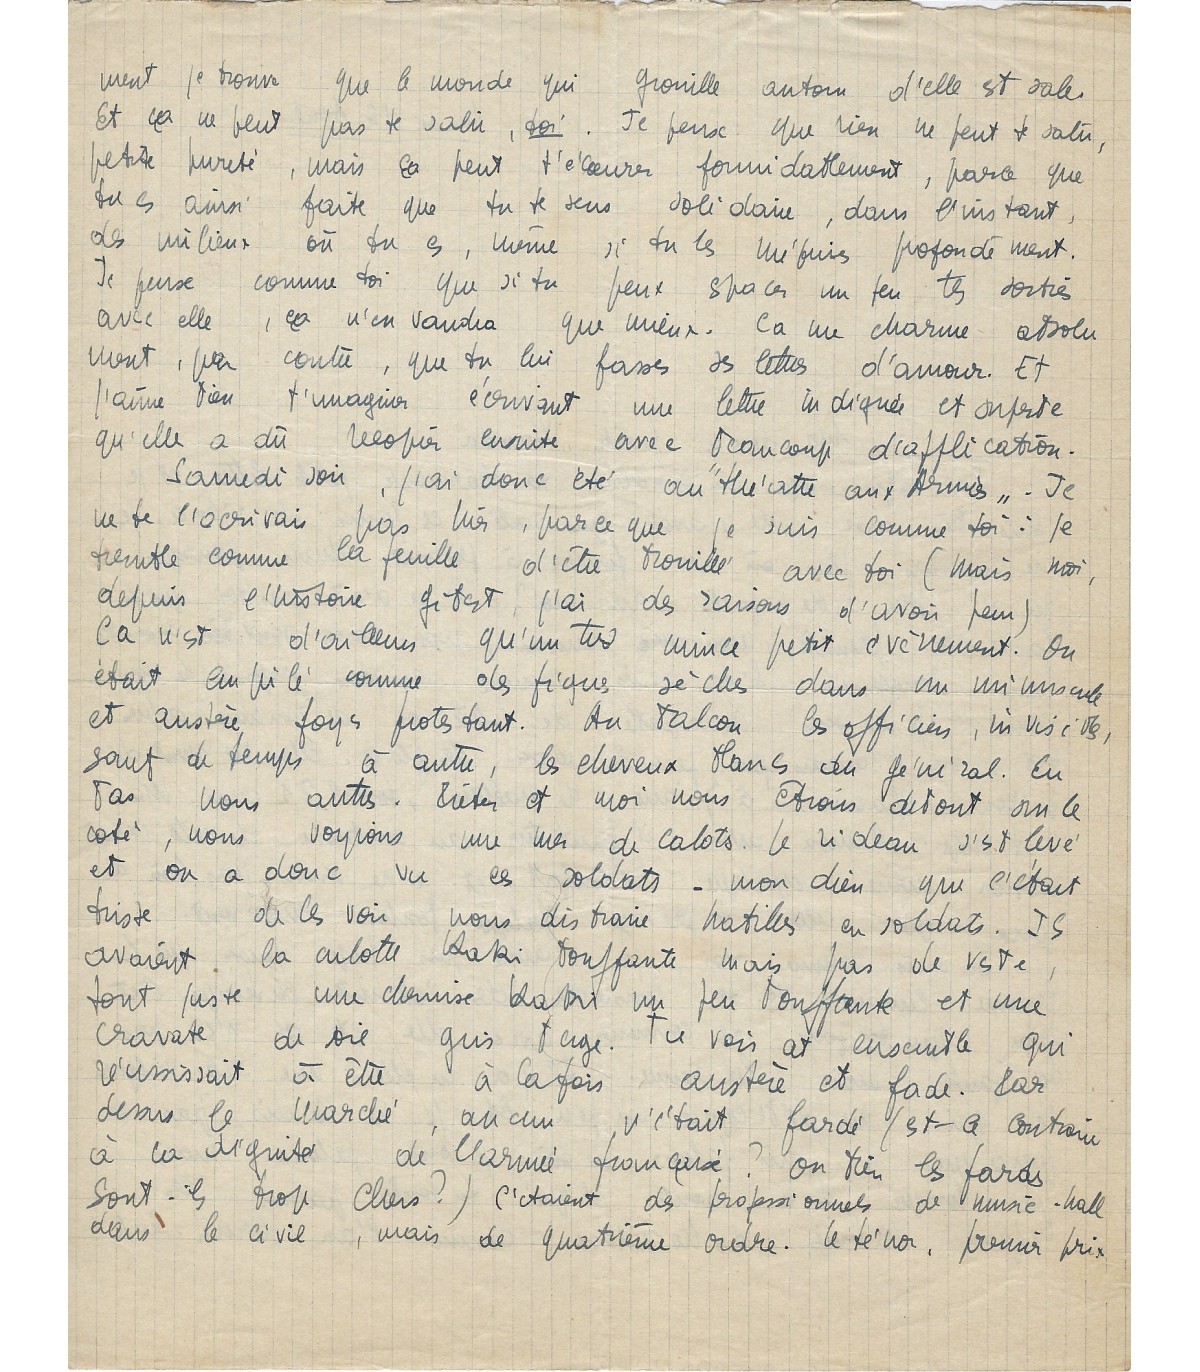 ment je trouve que le monde qui grouille autour d'elle est sale.
Et ça ne peut pas te salir, toi. Je pense que rien ne peut te salir,
petite pureté, mais ça peut t'écœurer formidablement, parce que
tu es ainsi faite que tu te sens solidaire, dans l'instant,
des milieux où tu es, même si tu les méprises profondément.
Je pense comme toi que si tu peux espacer un peu tes sorties
avec elle, ça n'en vaudra que mieux. Ca me charme absolu
ment, par contre, que tu lui fasses ses lettres d'amour. Et
j'aime bien t'imaginer écrivant une lettre indignée et superbe
qu'elle a dû recopier ensuite avec beaucoup d'application.
Samedi soir, j'ai donc été au "théâtre aux Armées". Je
ne te l'écrivais pas hier, parce que je suis comme toi : je
tremble comme la feuille d'être brouillé avec toi (mais moi,
depuis l'histoire j'ai des raisons d'avoir peur)
Ca n'est d'ailleurs qu'un très mince petit évènement. On
était empilé comme des figues sèches dans un minuscule
et austère foyer protestant. Au balcon les officiers, invisibles,
sauf de temps à autre, les cheveux blancs du général. En
bas nous autres. Pieter et moi nous étions debout sur le
coté, nous voyions une mer de calots. Le rideau s'est levé
et on a donc vu ces soldats - mon dieu que c'était
triste de les voir nous distraire habillés en soldats. Ils
avaient la culotte kaki bouffante mais pas de veste,
tout juste une chemise kaki un peu bouffante et une
cravate de soie gris beige. Tu vois cet ensemble qui
réussissait à être à la fois austère et fade. Par
dessus le marché, aucun n'était fardé (est-ce contraire
à la dignité de l'armée française ? ou bien les fards
sont-ils trop chers ?) C'étaient des professionnels de music-hall
dans le civil, mais de quatrième ordre. Le ténor, premier prix